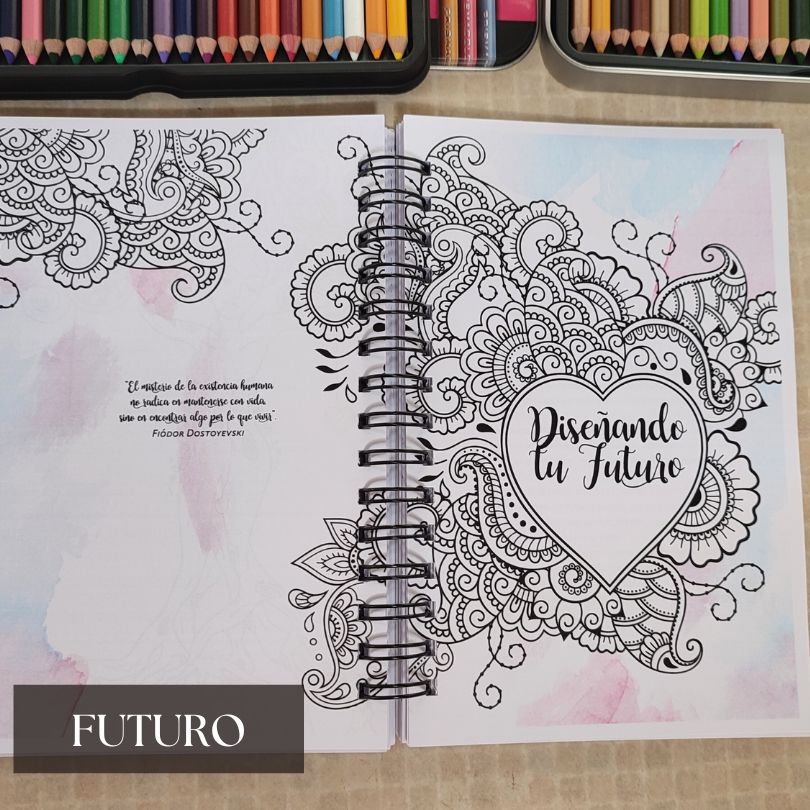 "El misterio de la existencia humana
no radica en mantenerse con vida,
sino en encontrar algo por lo que vivir".
FIÓDOR DOSTOYEVSKI
Diseñando
tu Futuro
FUTURO